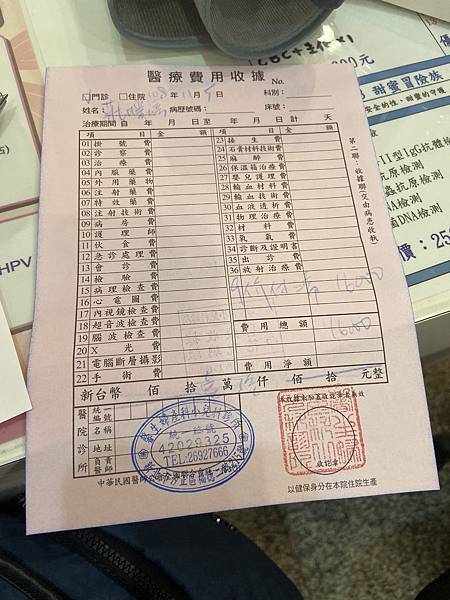 CBC+
醫療費用收據 No.
門診 住院 108年11月9日 科別:
姓名: 病歷號碼: 床號:
治療期間自 年 月 日至 年 月 日共計 天
項 目 金 額
01 掛號費
02 診察費
03 治療費
04 內服藥費
05 外用藥物
06 注射藥物
07 特效藥費
08 注射技術費
09 病房費
10 護理師費
11 伙食費
12 急診處理費
13 會診費
14 檢驗費
15 病理檢查費
16 心電圖費
17 內視鏡檢查費
18 超音波檢查費
19 腦波檢查費
20 X光費
21 電腦斷層攝影
22 手術費
項 目 金 額
23 接生費
24 石膏材料技術費
25 麻醉費
26 保溫箱治療費
27 嬰兒護理費
28 輸血材料費
29 輸血技術費
30 血液透析費
31 物理治療費
32 材料費
33 氧氣費
34 診斷及證明書
35 出診費
36 放射治療費
16000
費用總額 16000
費用淨額
新台幣 佰 拾 萬 仟 佰 拾 元整
醫院診所
統一編號
名稱
地址
負責醫師
統一編號
42029325
TEL:26927666
收訖章
中華民國醫師公會全國聯合會
以健保身分在本院住院生產
第二聯:收據聯(交由病患收執)
甜蜜冒險族
安全的性、甜蜜的守護
II型IgG抗體檢
原檢測
蟲抗原檢測
DNA檢測
DNA檢測
價:25
HPV